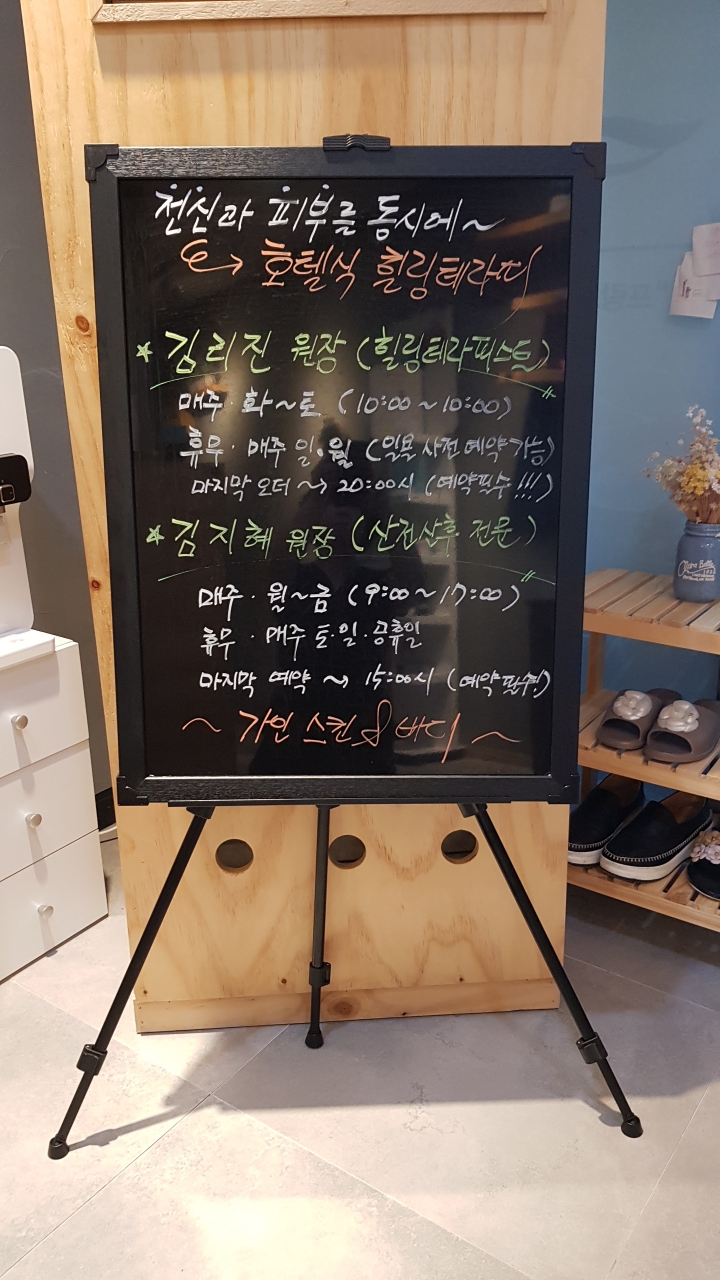 전신과 피부를 동시에~
호텔식 힐링테라피
* 김리진 원장 (힐링테라피스트)
매주 · 화~토 (10:00 ~ 10:00)
휴무 · 매주 일·월 (일욜 사전예약가능)
마지막 오더 ~> 20:00시 (예약필수!!!)
* 김지혜 원장 (산전산후 전문)
매주 · 월~금 (9:00~17:00)
휴무 · 매주 토·일·공휴일
마지막 예약 ~> 15:00시 (예약필수!)
~ 가인 스킨 & 바디 ~